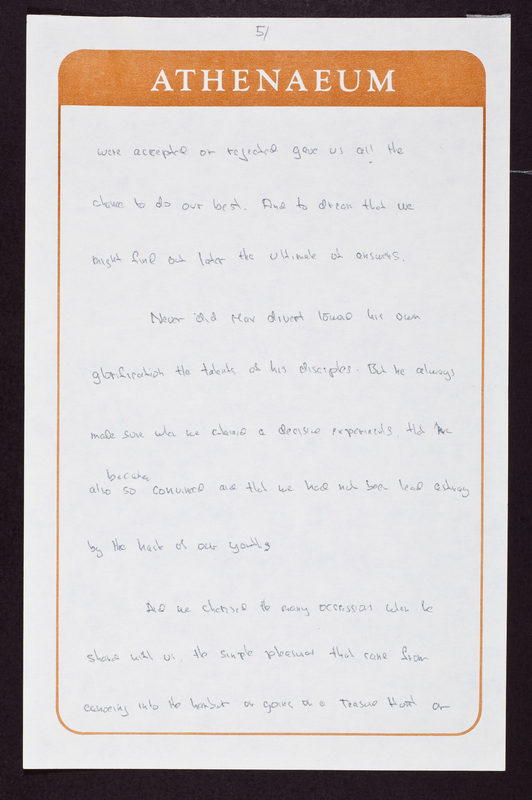 5/
ATHENAEUM
were accepted or rejected gave us all the
chance to do our best. And to dream that we
might find out later the ultimate of answers.
Never did Max divert toward his own
glorification the talents of his disciples. But he always
made sure when we claimed a decisive experiments, that he
became
also so convinced and that we had not been lead astray
by the haste of our youth
And we cherised the many occassions when he
shared with us the simple pleasures that came from
canoeing into the harbor or going on a Treasure Hunt or